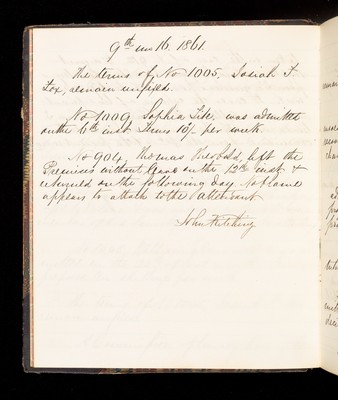 9th mo 16. 1861
The terms of No 1005. Josiah F
Fox, remain unfixed.
No 1009 Sophia Fite, was admitted
on the 6th inst. Terms 10/- per week.
No 904, Thomas Theobald, left the
Premises without leave on the 12th inst &
returned on the following day. No blame
appears to attach to the attendant
John Kitching